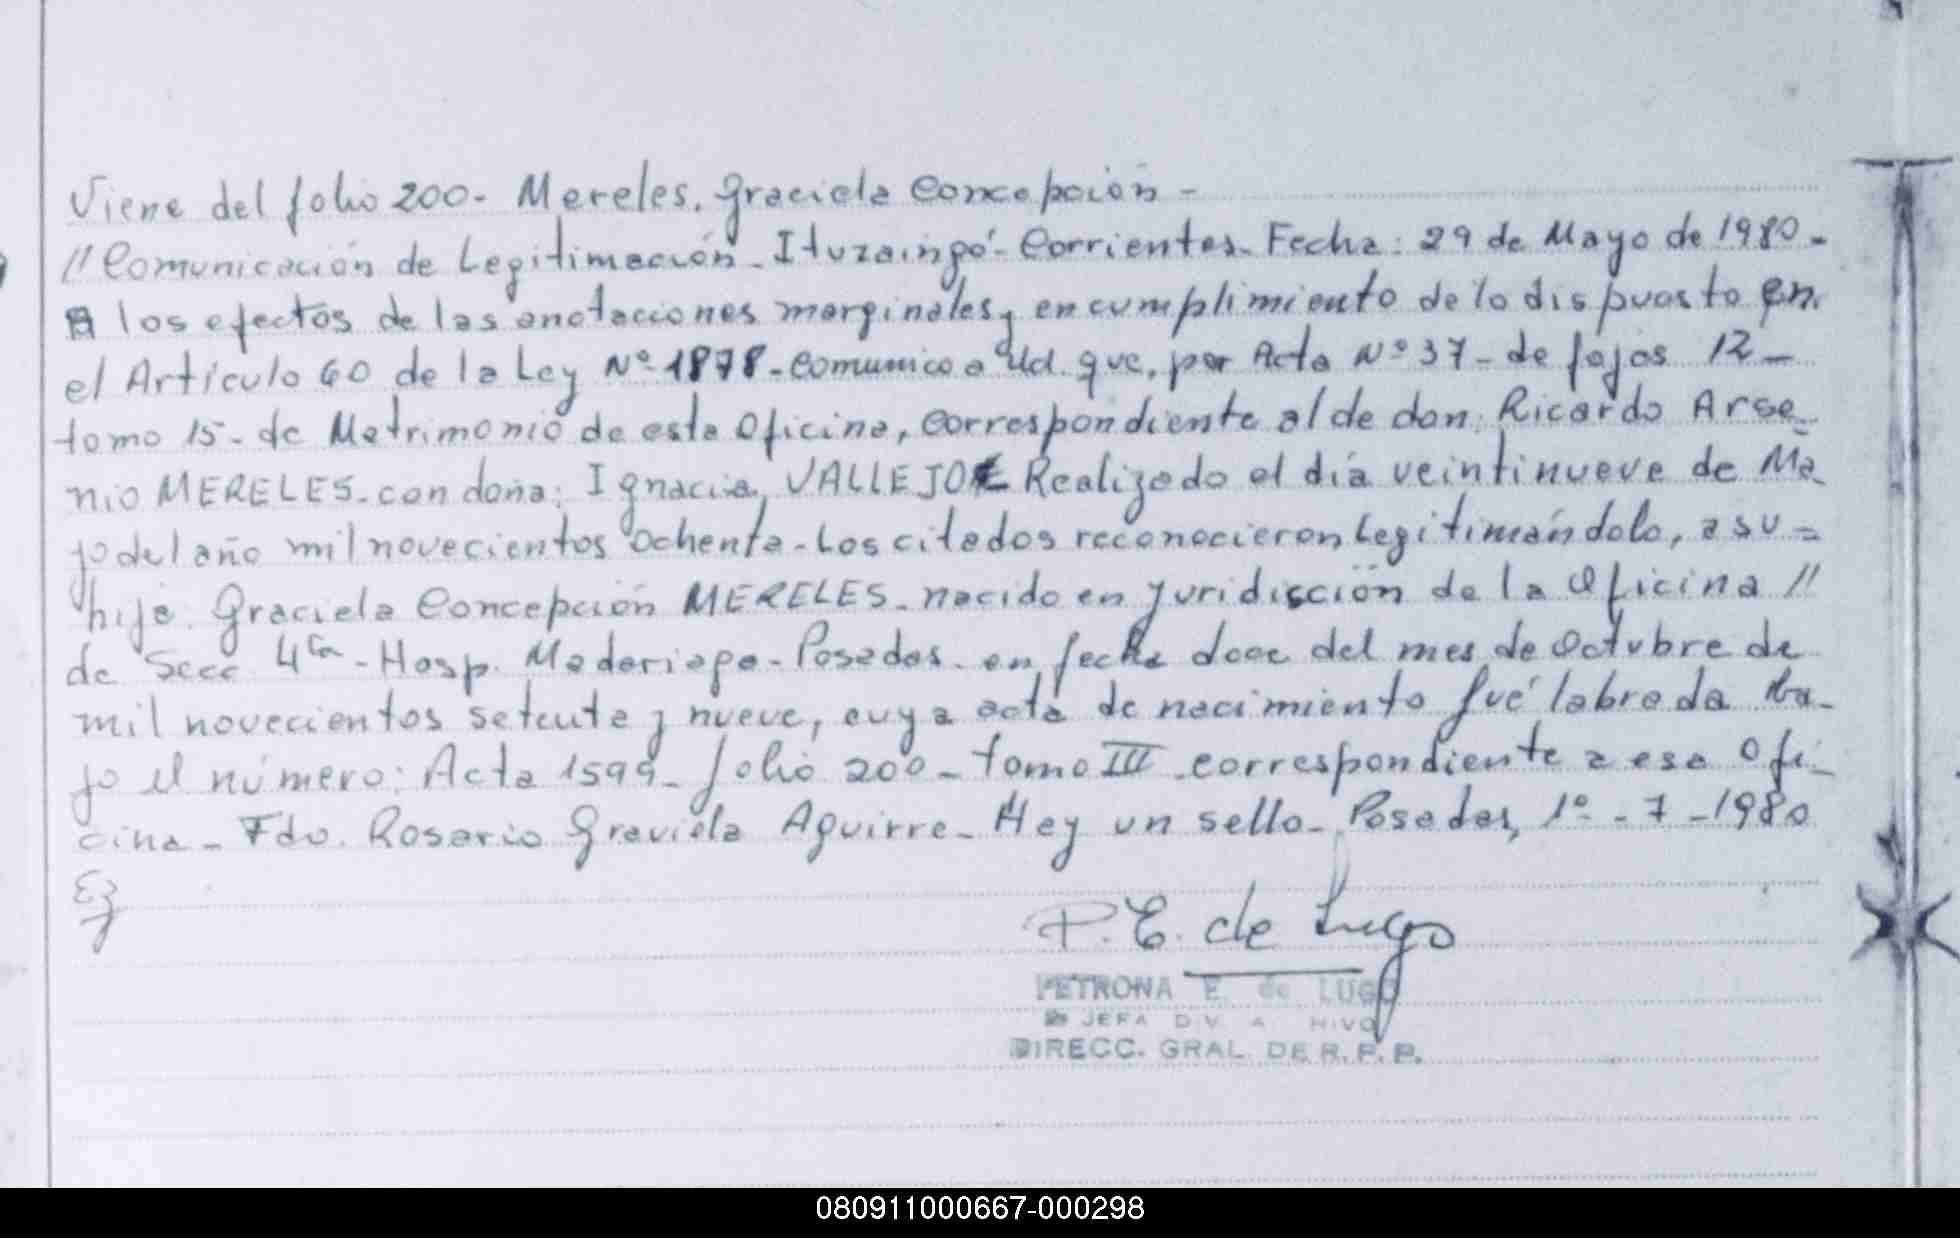 Viene del folio 200- Mereles, Graciela Concepción -
// Comunicación de Legitimación - Ituzaingó - Corrientes - Fecha: 29 de Mayo de 1980 -
A los efectos de las anotaciones marginales y en cumplimiento de lo dispuesto en
el Artículo 60 de la Ley Nº 1878 - comunico a Ud. que, por Acta Nº 37 - de fojas 12 -
tomo 15 - de Matrimonio de esta Oficina, correspondiente al de don: Ricardo Arse-
nio MERELES - con doña: Ignacia VALLEJO Realizado el día veintinueve de Ma-
yo del año mil novecientos ochenta - Los citados reconocieron Legitimándolo, a su -
hija. Graciela Concepción MERELES - nacido en Juridicción de la Oficina //
de Secc 4ta - Hosp. Madariaga - Posadas - en fecha doce del mes de Octubre de
mil novecientos setenta y nueve, cuya acta de nacimiento fué labrada ba-
jo el número: Acta 1599 - folio 200 - tomo III - correspondiente a esa Ofi-
cina - Fdo. Rosario Graciela Aguirre - Hay un sello - Posadas, 1º - 7 - 1980
P. E. de Lugo
PETRONA E. de LUGO
JEFA
DIRECC. GRAL. DE R. P. P.
080911000667-000298